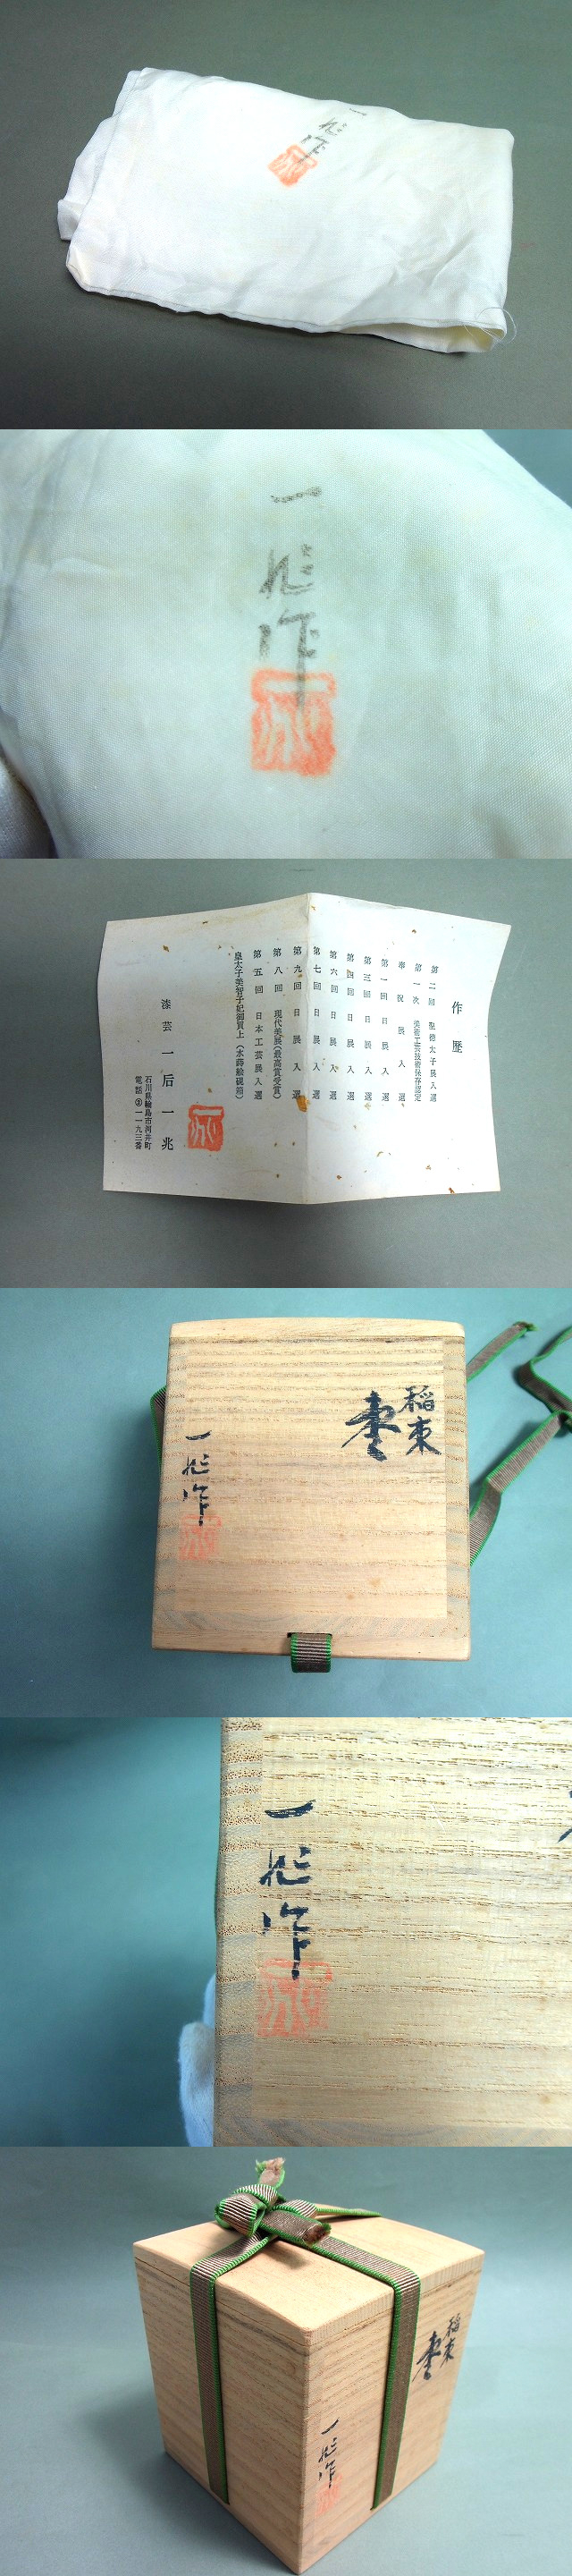 一兆作
一兆作
作歴
第二回 聖徳太子展入選
第一次 美術工芸技術保存認定
奉祝展入選
第一回日展入選
第三回日展入選
第四回日展入選
第六回日展入選
第七回日展入選
第九回日展入選
第八回 現代美展(最高賞受賞)
第五回 日本工芸展入選
皇太子美智子妃御買上(水蒔絵硯箱)
漆芸 一后一兆
石川県輪島市河井町
電話②一一九三番
稲束
棗
一兆作
一兆作
稲束
棗
一兆作